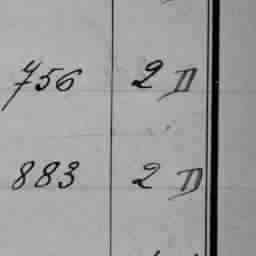 756 2 D
883 2 D